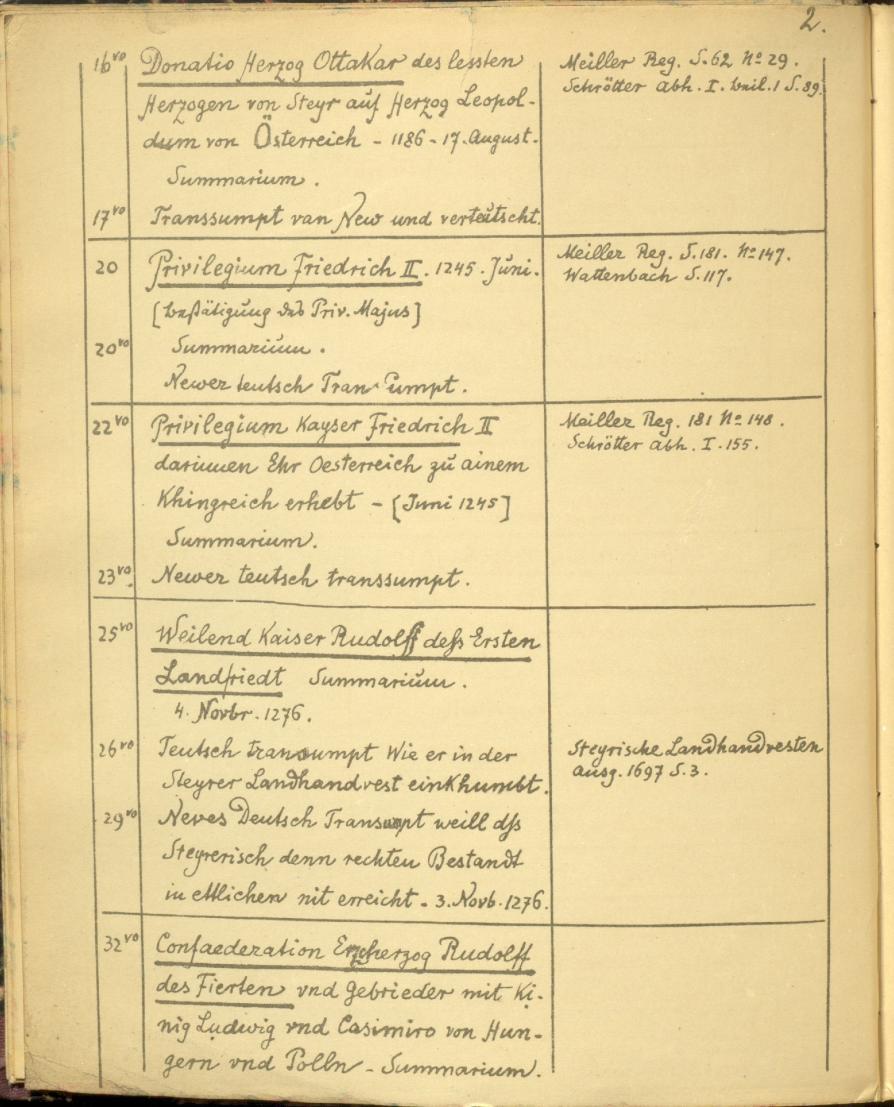 2.
16vo Donatio Herzog Ottakar des lessten
Herzogen von Steyr auf Herzog Leopol-
dum von Österreich - 1186 - 17. August.
Summarium.
17vo Transsumpt van New und verteütscht.
Meiller Reg. S. 62 No 29.
Schrötter abh. I. beil. 1 S. 89.
20 Privilegium Friedrich II. 1245. Juni.
[bestätigung das Priv. Majus]
20vo Summarium.
Newer teutsch Transumpt.
Meiller Reg. S. 181. No 147.
Wattenbach S. 117.
22vo Privilegium Kayser Friedrich II
darinnen Ehr Oesterreich zu ainem
Khingreich erhebt - [Juni 1245]
Summarium.
23vo. Newer teutsch transsumpt.
Meiller Reg. 181 No 148.
Schrötter abh. I. 155.
25vo Weilend Kaiser Rudolff dess Ersten
Landfriedt Summariüm.
4. Novbr. 1276.
26vo Teutsch transumpt Wie er in der
Steyrer Landhandvest einKhumbt.
29vo Neves Deutsch Transumpt weill dss
Steyrerisch denn rechten Bestandt
in ettlichen nit erreicht - 3. Novb. 1276.
Steyrische Landhandvesten
ausg. 1697 S. 3.
32vo Confaederation Erzherzog Rudolff
des Fierten vnd Gebrieder mit Ki-
nig Ludwig vnd Casimiro von Hun-
gern vnd Polln - Summarium.